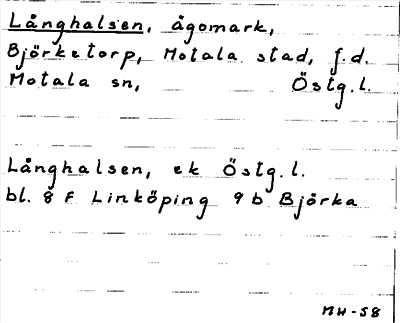 Långhalsen, ägomark,
Björketorp, Motala stad, f.d.
Motala sn, Östg.l.
Långhalsen, ek Östg.l.
bl. 8 F Linköping 9 b Björka
MH-58